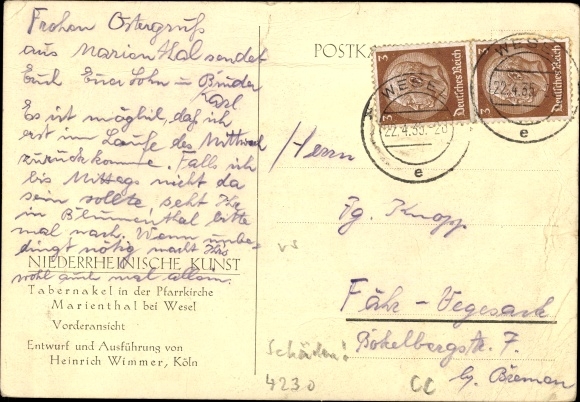 Frohen Ostergruß
aus Marienthal sendet
Euch Euer Sohn u Bruder
Karl
Es ist möglich, daß ich
erst im Laufe des Mittwoch
zurückkomme. Falls ich
bis Mittags nicht da
sein sollte, seht Ihr
in Blumenthal bitte
mal nach. Wenn unbe-
dingt nötig macht Ihrs
wohl auch mal allein.
NIEDERRHEINISCHE KUNST
Tabernakel in der Pfarrkirche
Marienthal bei Wesel
Vorderansicht
Entwurf und Ausführung von
Heinrich Wimmer, Köln
POSTKA
3 Deutsches Reich 3
3 Deutsches Reich 3
WESEL
22.4.35.
e
WESE
22.4.35
e
Herrn
Jg. Knopp
Fähr-Vegesack
Bökelbergstr. 7.
bz. Bremen
vs
Schäden!
4230
CC